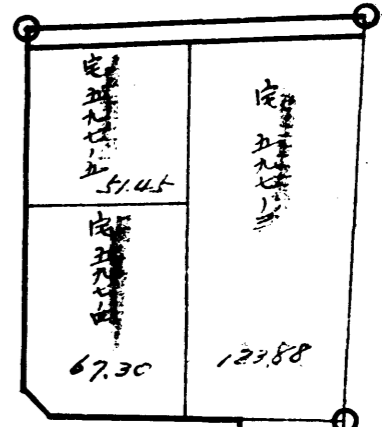 宅 五九七ノ五
51.45
宅 五九七ノ四
67.30
宅 五九七ノ三
123.88